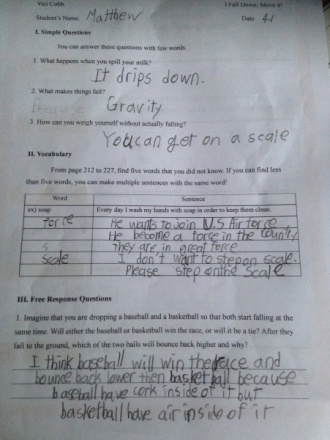 Vici Cobb I Fall Down, Move it!
Student's Name: Matthew Date 4.1
I. Simple Questions
You can answer these questions with few words.
1. What happens when you spill your milk?
It drips down.
2. What makes things fall?
Because Gravity
3. How can you weigh yourself without actually falling?
You can get on a scale
II. Vocabulary
From page 212 to 227, find five words that you did not know. If you can find less
than five words, you can make multiple sentences with the same word!
Word Sentence
ex) soap Every day I wash my hands with soap in order to keep them clean.
force He wants to join U.S Air force
He become a force in the county
s They are in great force
scale I don't want to step on scale.
Please step on the scale
III. Free Response Questions
1. Imagine that you are dropping a baseball and a basketball so that both start falling at the
same time. Will either the baseball or basketball win the race, or will it be a tie? After they
fall to the ground, which of the two balls will bounce back higher and why?
I think baseball will win the race and
bounce back lower then basketball because
baseball have cork inside of it but
basketball have air inside of it